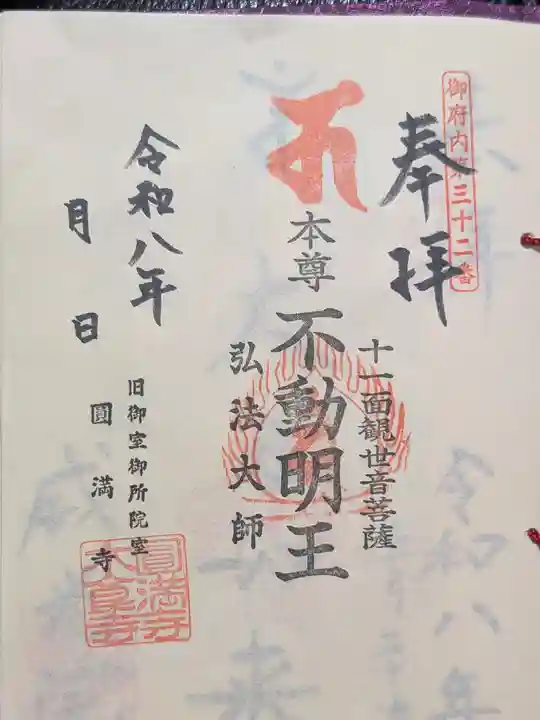 御府内第三十二番
奉拝
十一面観世音菩薩
本尊 不動明王
弘法大師
令和八年
月 日
旧御室御所院室
圓満寺